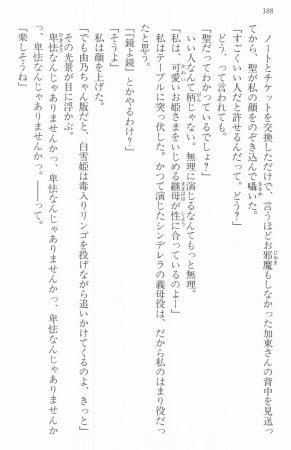 188
ノートとチケットを交換しただけで、言うほどお邪魔もしなかった加東さんの背中を見送っ
てから、聖が私の顔をのぞき込んで囁いた。
「すごくいい人だと許せるんだって。どう?」
どう、って言われても。
「聖だってわかっているでしょ?」
いい人なんて柄じゃない。無理に演じるなんてもっと無理。
「私は、可愛いお姫さまをいじめる継母が性に合っているのよー」
私はテーブルに突っ伏した。かつて演じたシンデレラの義母役は、だから私のはまり役だっ
たと思う。
「『鏡よ鏡』とかやるわけ?」
「そうよ」
私は顔を上げた。
「でも由乃ちゃん版だと、白雪姫は毒入りリンゴを投げながら追いかけてくるのよ、きっと」
その光景が目に浮かぶ。
卑怯なんじゃありませんかっ、卑怯なんじゃありませんかっ、卑怯なんじゃありませんか
っ、卑怯なんじゃありませんかっ。――って。
「楽しそうね」